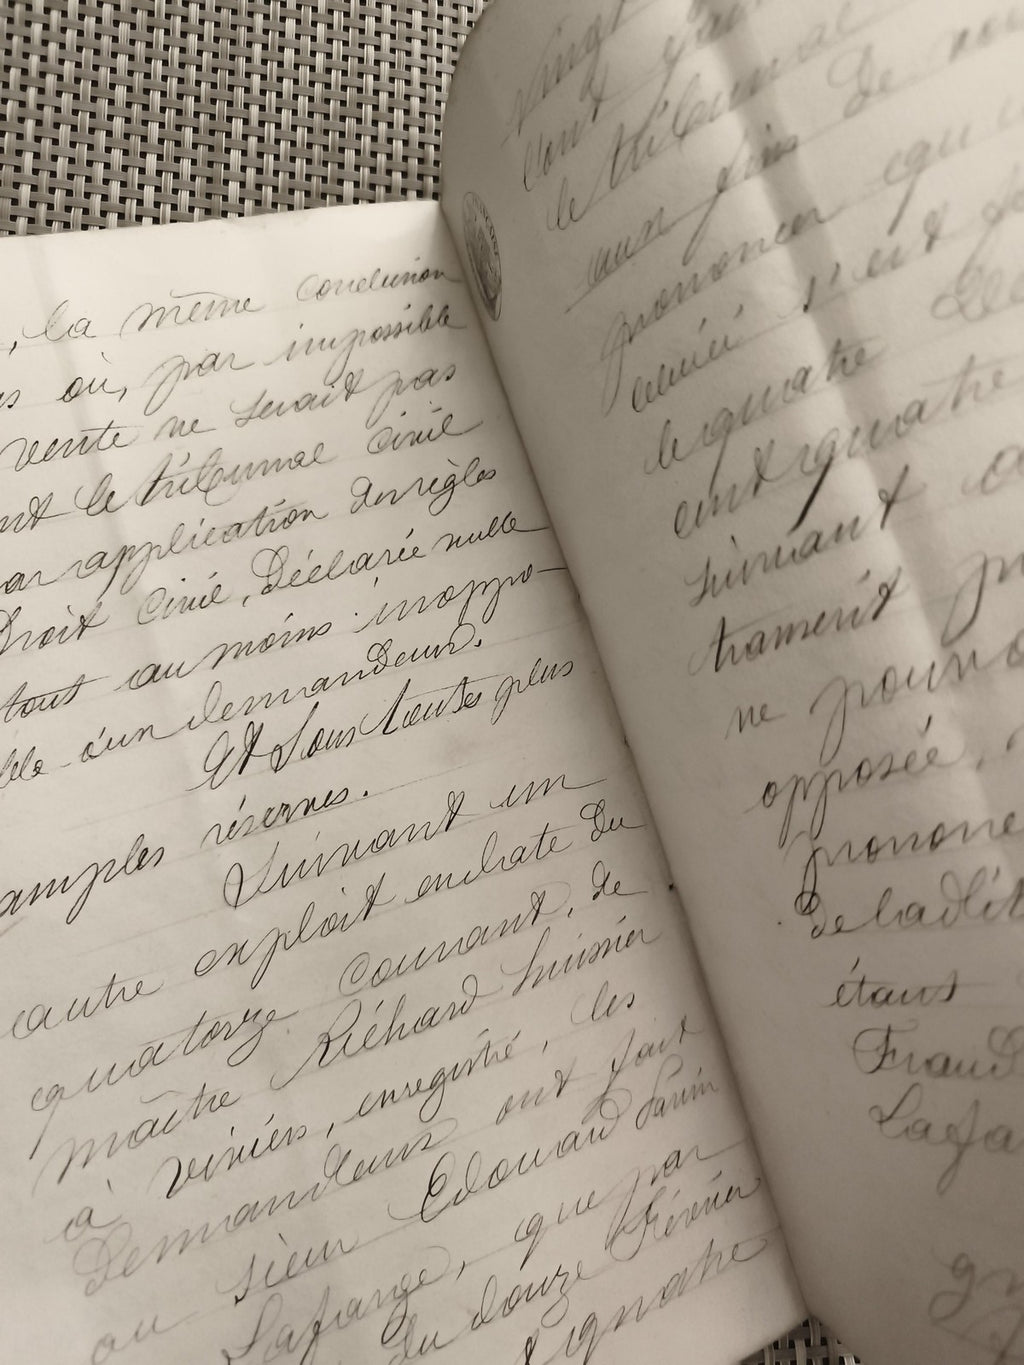 , la même condition
où, par impossible
vente ne serait pas
le tribunal civil
application des règles
Droit Civil, Déclarée nulle
tout au moins inoppo-
aux demandeurs.
Et sous toutes plus
amples réserves.
Suivant un
autre exploit en date du
quatorze courant, de
maître Richard huissier
à Viviers, enregistré, les
Demandeurs ont fait
au sieur Edouard
Lafarge, que par
du douze Février
quatre
vingt
cent
le tribunal
aux fins de
prononcer
s'est
le quatre
cent quatre
suivant
transcrit
ne pourra
opposée,
prononce
De ladite
étant
Fraud
Lafa